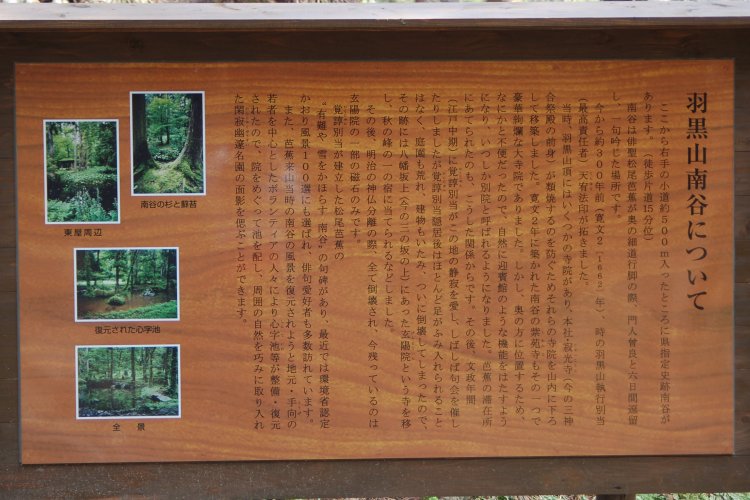 羽黒山南谷について
ここから右手の小道約５００ｍ入ったところに県指定史跡南谷が
あります。（徒歩片道15分位）
南谷は俳聖松尾芭蕉が奥の細道行脚の際、門人曽良と六日間逗留
し、一句吟じた場所です。
今から約３００年前（寛文２（１６６２）年）、時の羽黒山執行別当
（最高責任者）天宥法印が拓きました。
当時、羽黒山頂にはいくつかの寺院があり、本社・寂光寺（今の三神
合祭殿の前身）が類焼するのを防ぐためそれらの寺院を山内に下ろ
して移築しました。寛文２年に築かれた南谷の紫苑寺もその一つで
豪華絢爛な大寺院でありました。しかし、奥の方に位置するため、
なにかと不便だったので、自然に迎賓館のような機能をはたすよう
になり、いつしか別院と呼ばれるようになりました。芭蕉の滞在所
にあてられたのも、こうした関係からです。その後、文政年間
（江戸中期）に覚諄別当がこの地の静寂を愛し、しばしば句会を催し
たりしましたが覚諄別当隠居後はほとんど足がふみ入れられること
はなく、庭園も荒れ、建物もいたみ、ついに倒壊してしまったので、
その跡には八幡坂上（今の二の坂の上）にあった玄陽院という寺を移
し、秋の峰の一の宿に当てられるなどしました。
その後、明治の神仏分離の際、全て倒壊され、今残っているのは
玄陽院の一部の礎石のみです。
覚諄別当が建立した松尾芭蕉の
“有難や 雪をかほらす 南谷”の句碑があり、最近では環境省認定
かおり風景１００選にも選ばれ、俳句愛好者も多数訪れています。
また、芭蕉来山当時の南谷の風景を復元されようと地元・手向の
若者を中心としたボランティアの人々により心字池等が整備・復元
されたので、院をめぐって池を配し、周囲の自然を巧みに取り入れ
た閑寂幽邃名園の面影を偲ぶことができます。
南谷の杉と蘚苔
東屋周辺
復元された心字池
全景